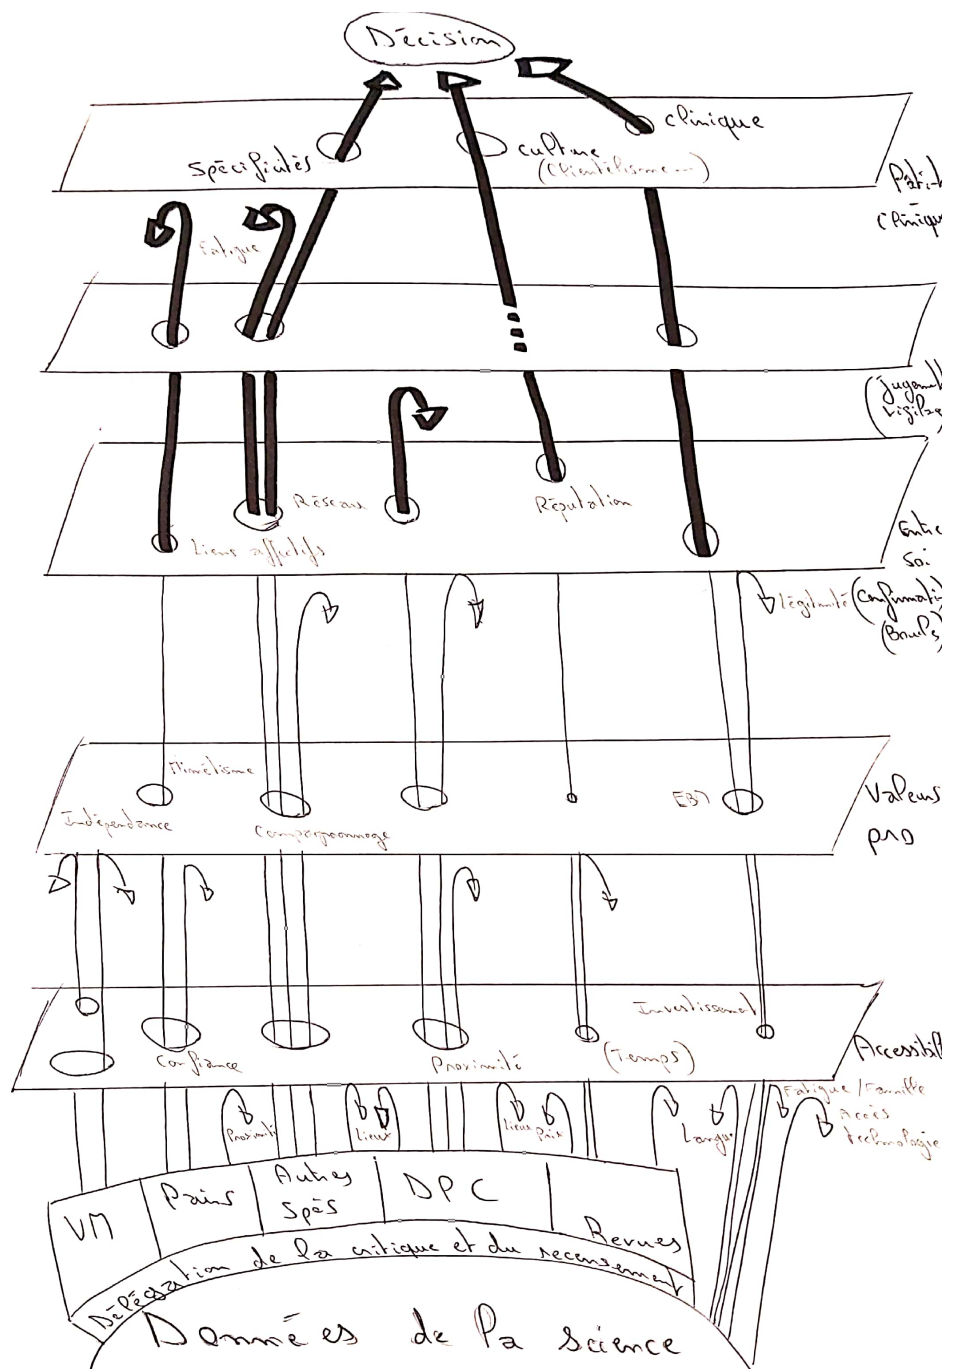 Décision
clinique
Spécificités
culture
(Clientélisme...)
Patient
-
Clinique
Fatigue
(Jugement
Vigilan
Réseaux
Réputation
Liens affectifs
Entre
soi
Légitimité
(Confirmati
Mimétisme
EBM
Indépendance
Compagnonnage
Valeurs
pro
Investissement
Confiance
Proximité
(Temps)
Accessibil
Fatigue / Famille
Accès
technologie
Proximité
Lieux
Lieux
Prix
Langue
VM
Pairs
Autres
Spés
DPC
Revues
Délégation de la critique et du recensement
Données de la science